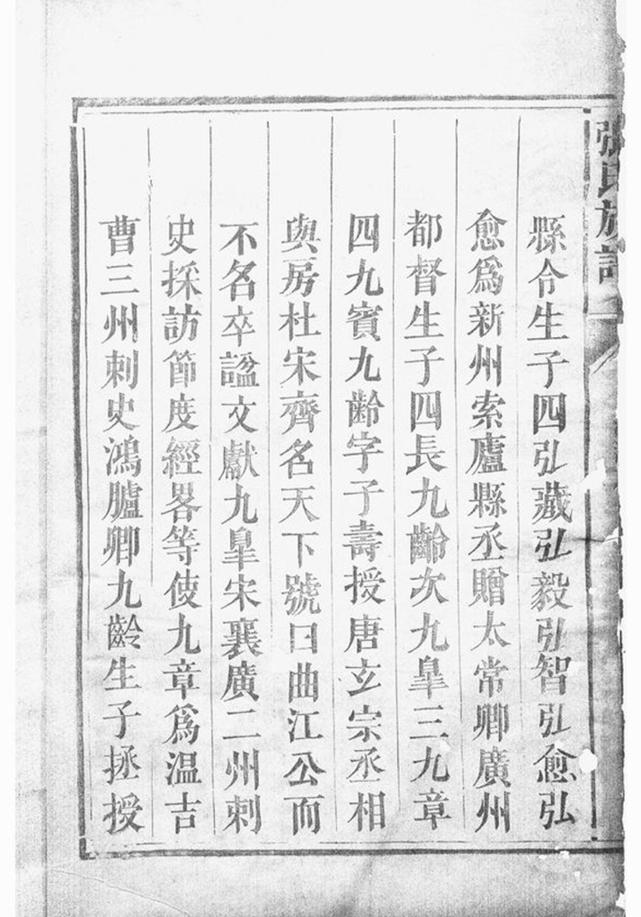 張氏族譜
縣令生子四弘藏弘毅弘智弘愈弘
愈為新州索廬縣丞贈太常卿廣州
都督生子四長九齡次九臯三九章
四九賓九齡字子壽授唐玄宗丞相
與房杜宋齊名天下號曰曲江公而
不名卒諡文獻九臯宋襄廣二州刺
史採訪節度經畧等使九章爲温吉
曹三州刺史鴻臚卿九齡生子拯授